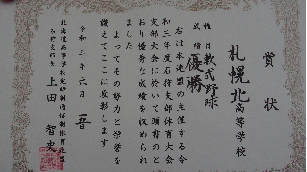 賞状
札幌北高等学校
種目 軟式野球
成績 優勝
右は本連盟の主催する令
和三年度石狩支部体育大会
支部大会に於いて頭書のと
おり優秀な成績を収められ
ました
よってその努力と栄誉を
讃えてここに表彰します
令和三年六月一五日
北海道高等学校定時制通信制体育連盟
石狩支部長 上田智史